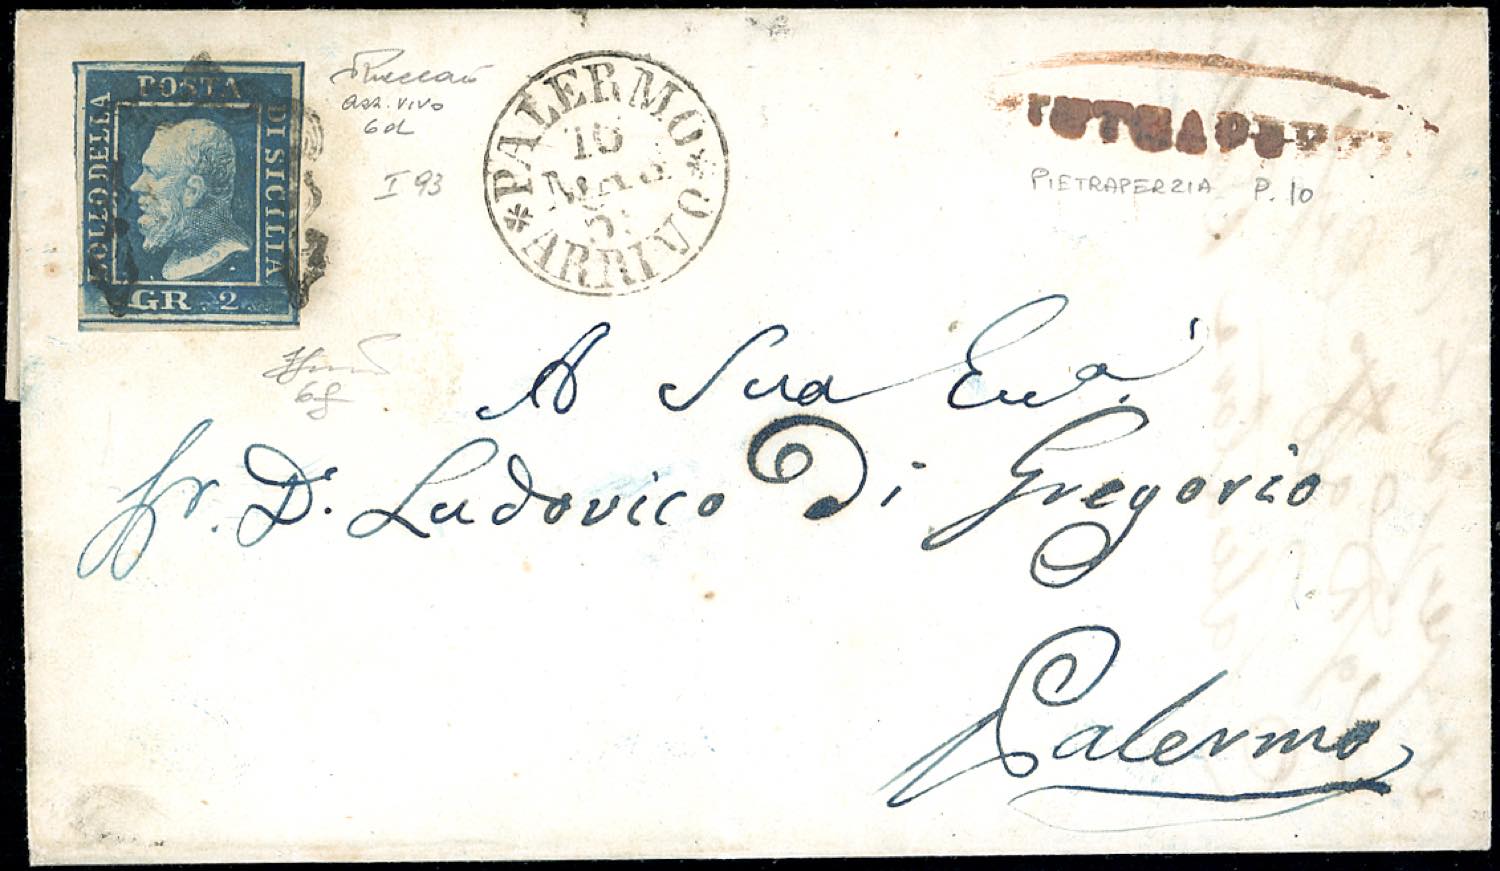 POSTA
BOLLO DELLA
DI SICILIA
GR. 2
azz. vivo
6d
I 93
PALERMO
ARRIVO
PIETRAPERZIA P. 10
6g
A Sua Ecc.a
Sr. D. Ludovico Di Gregorio
Palermo